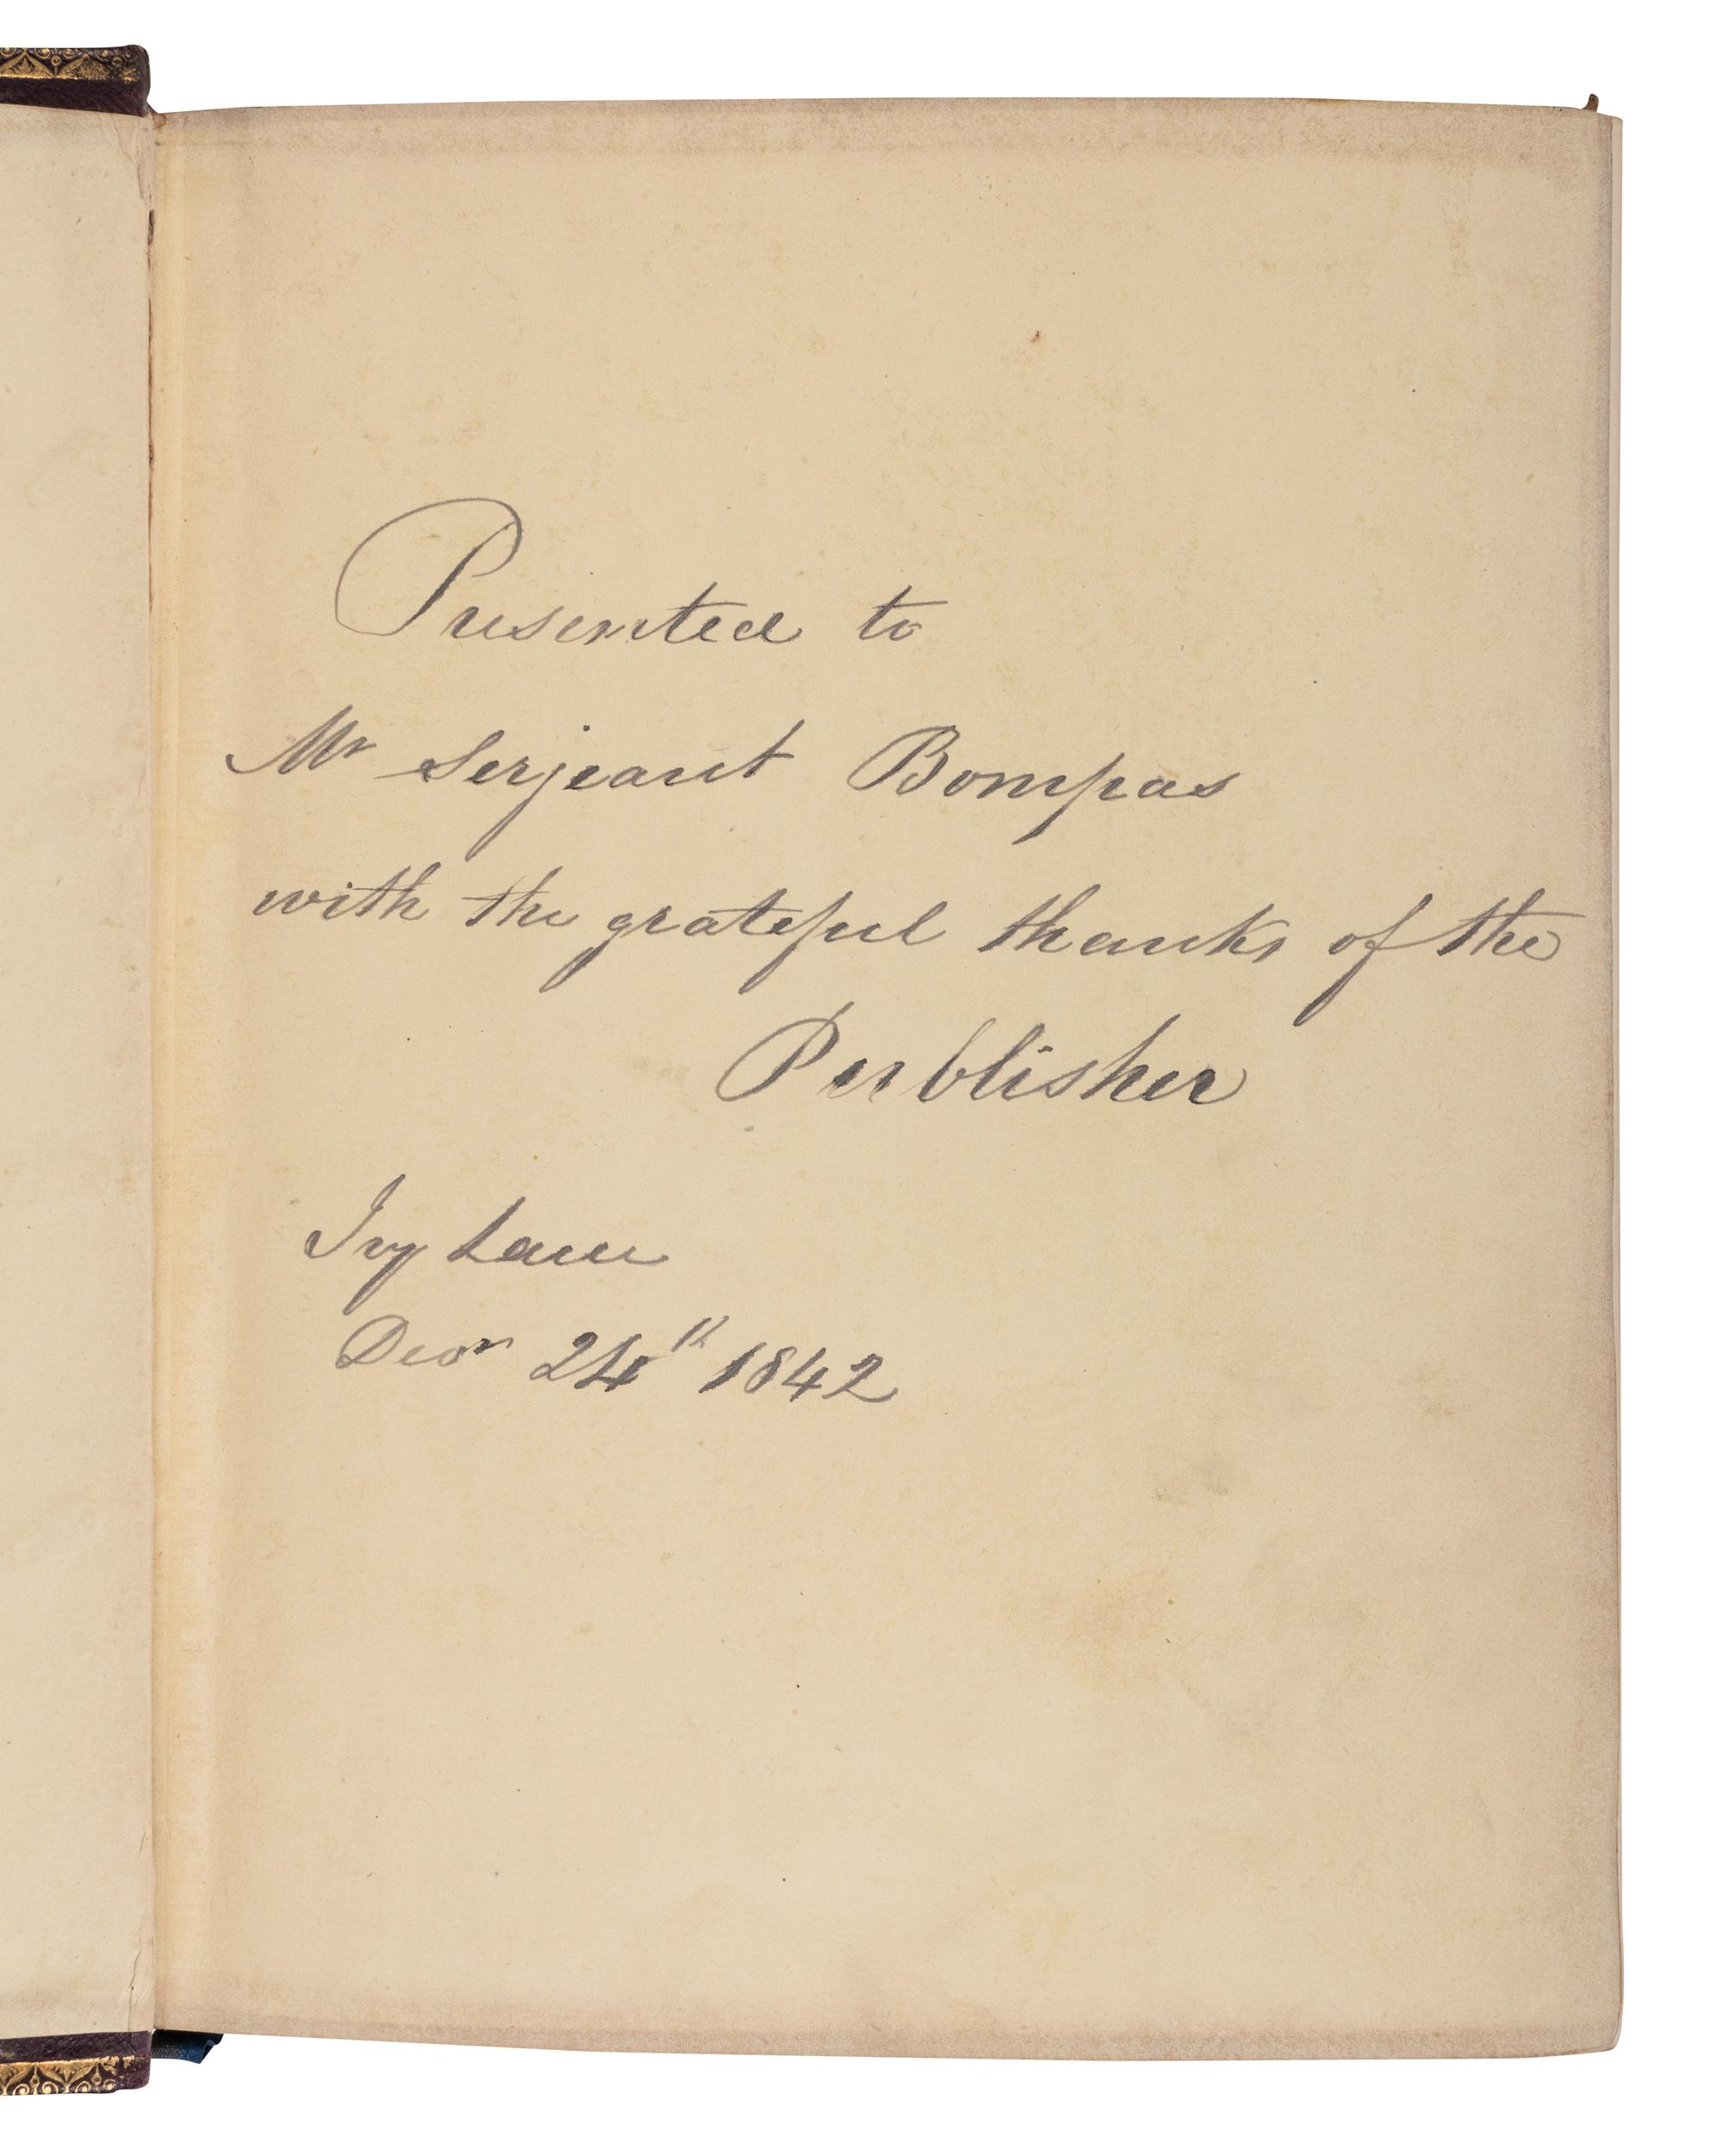 Presented to
Mr Serjeant Bompas
with the grateful thanks of the
Publisher
Ivy Lane
Decr 24th 1842